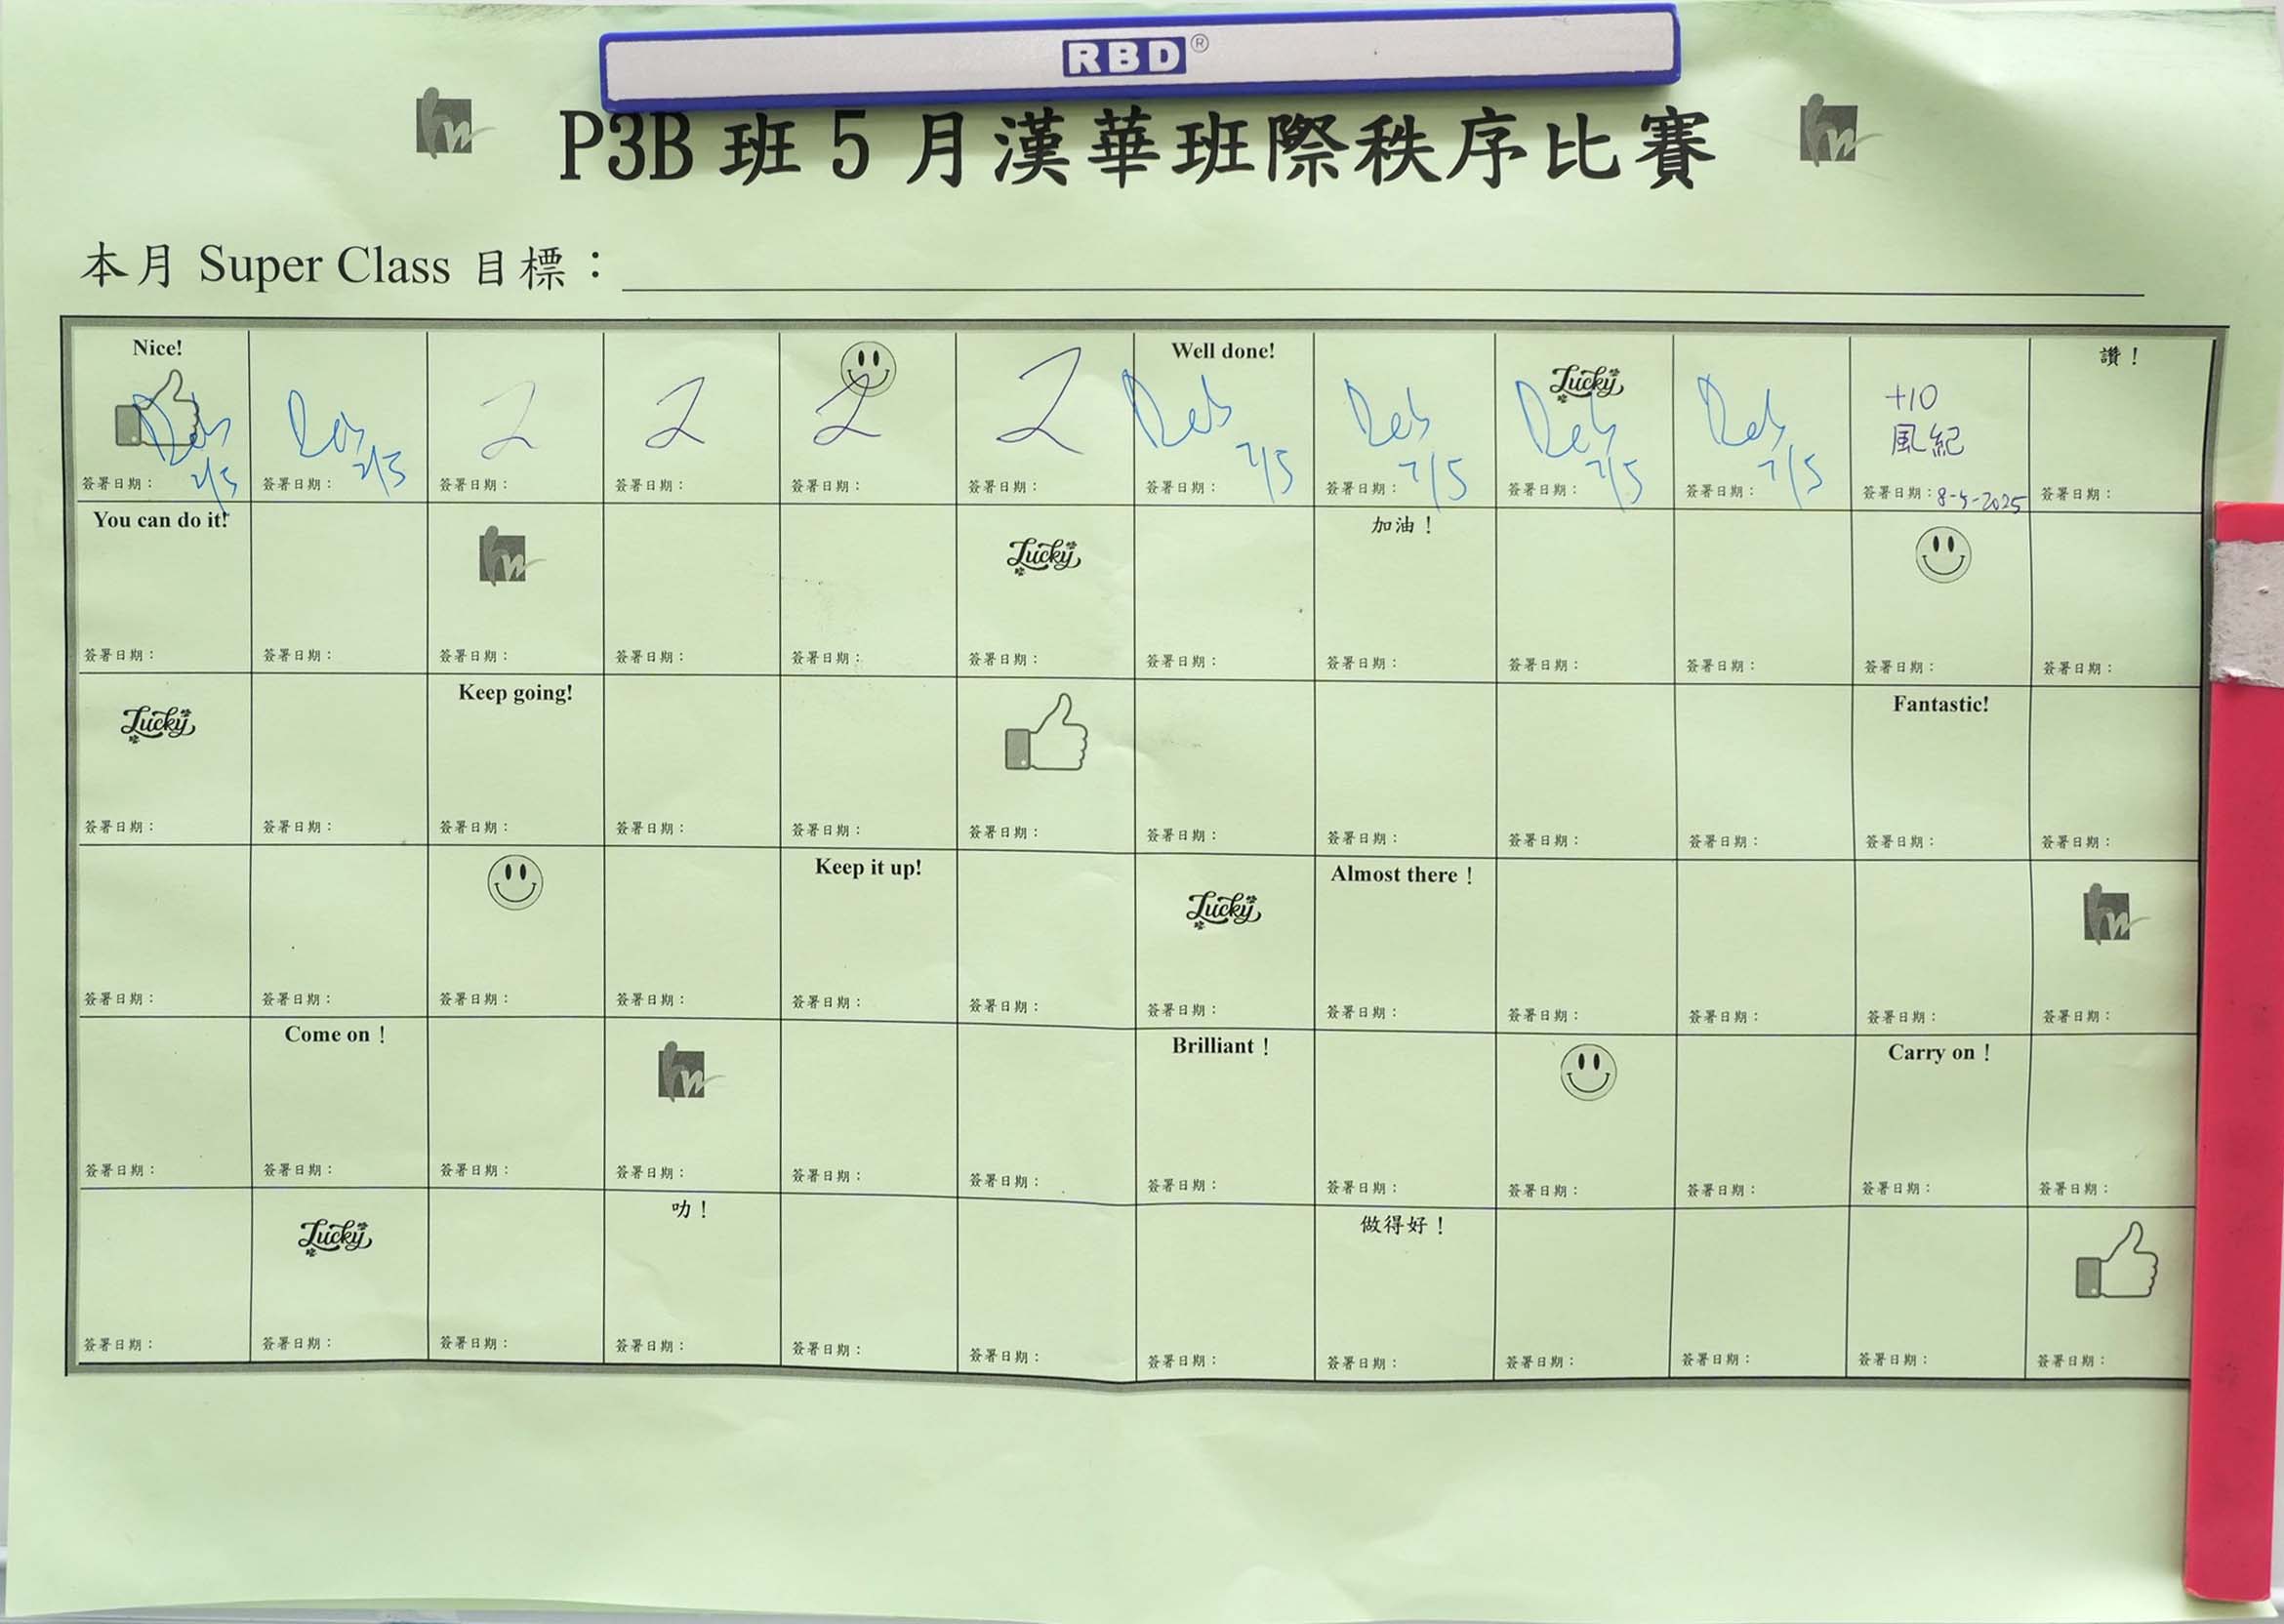 RBD®
P3B 班 5 月漢華班際秩序比賽
本月 Super Class 目標：
Nice!
Well done!
Lucky
讚！
2
2
2
2
Deb
Deb
Deb
Deb
+10
風紀
簽署日期： 2/5
簽署日期： 2/5
簽署日期：
簽署日期：
簽署日期：
簽署日期：
簽署日期： 7/5
簽署日期： 7/5
簽署日期： 7/5
簽署日期： 7/5
簽署日期：8-5-2025
簽署日期：
You can do it!
hw
Lucky
加油！
簽署日期：
簽署日期：
簽署日期：
簽署日期：
簽署日期：
簽署日期：
簽署日期：
簽署日期：
簽署日期：
簽署日期：
簽署日期：
簽署日期：
Lucky
Keep going!
Fantastic!
簽署日期：
簽署日期：
簽署日期：
簽署日期：
簽署日期：
簽署日期：
簽署日期：
簽署日期：
簽署日期：
簽署日期：
簽署日期：
簽署日期：
Keep it up!
Lucky
Almost there！
hw
簽署日期：
簽署日期：
簽署日期：
簽署日期：
簽署日期：
簽署日期：
簽署日期：
簽署日期：
簽署日期：
簽署日期：
簽署日期：
簽署日期：
Come on！
hw
Brilliant！
Carry on！
簽署日期：
簽署日期：
簽署日期：
簽署日期：
簽署日期：
簽署日期：
簽署日期：
簽署日期：
簽署日期：
簽署日期：
簽署日期：
簽署日期：
Lucky
叻！
做得好！
簽署日期：
簽署日期：
簽署日期：
簽署日期：
簽署日期：
簽署日期：
簽署日期：
簽署日期：
簽署日期：
簽署日期：
簽署日期：
簽署日期：